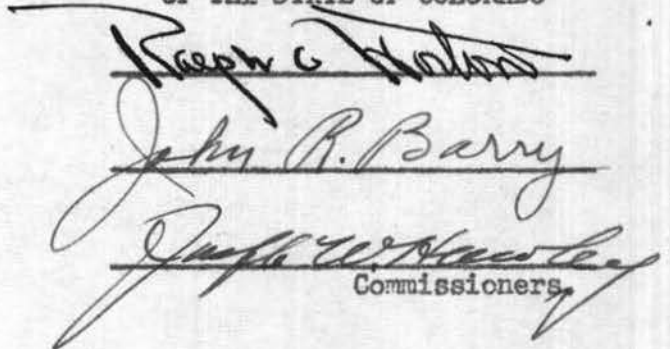 OF THE STATE OF COLORADO
Ralph C Horton
John R. Barry
Joseph W. Hawley
Commissioners.